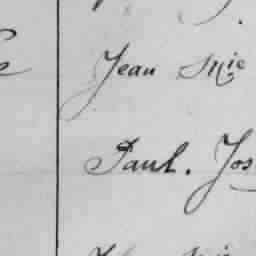 Jean Mie
Paul. Jos